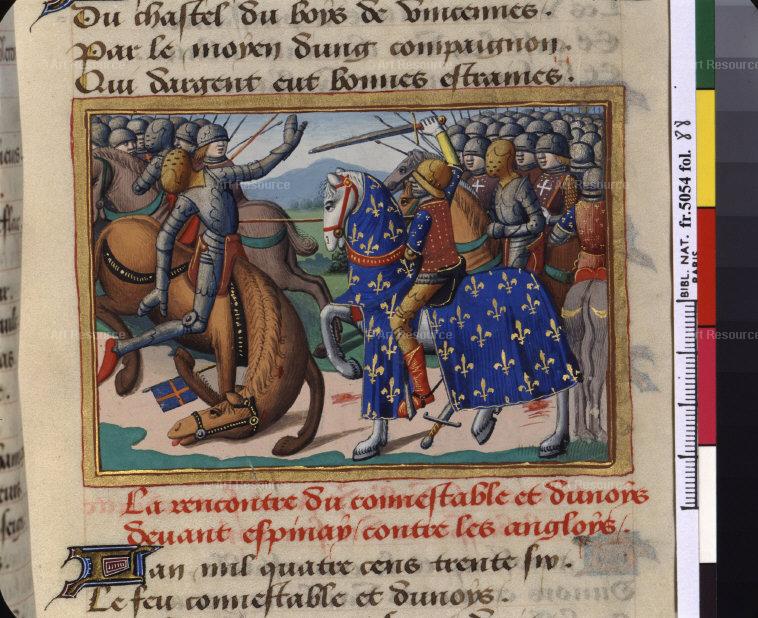 Du chastel du boys de vincennes.
Par le moyen dung compaignon.
Qui dargent eut bonnes estraines.
La rencontre du connestable et dunoys
devant espinay/contre les angloys/.
Lan mil quatre cens trente six.
Le feu connestable et dunoys.
BIBL. NAT. fr.5054 fol. 88
PARIS
Art Resource